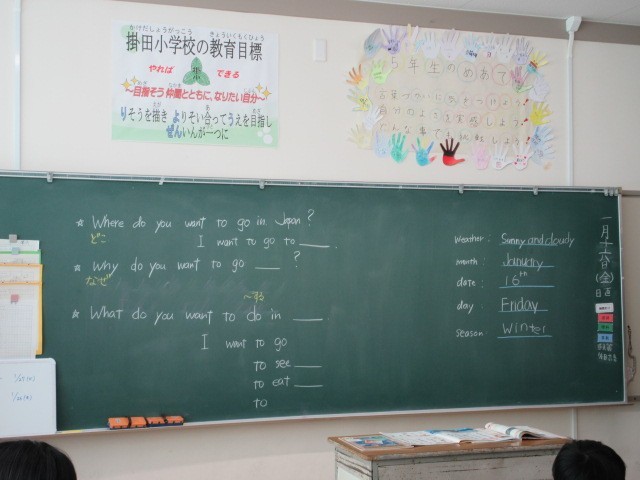 かけだしょうがっこう きょういくもくひょう
掛田小学校の教育目標
やれば できる
~目指そう 仲間とともに、なりたい自分~
りそうを描き よりそい合ってうえを目指し
ぜんいんが一つに
5年生のめあて
☆ Where do you want to go in Japan?
どこ
I want to go to ____.
☆ Why do you want to go ____ ?
なぜ
~する
☆ What do you want to do in ____
I want to go
to see ____
to eat ____
to
Weather: Sunny and cloudy
month: January
date: 16th
day: Friday
season: Winter
一月十六日(金)
日直